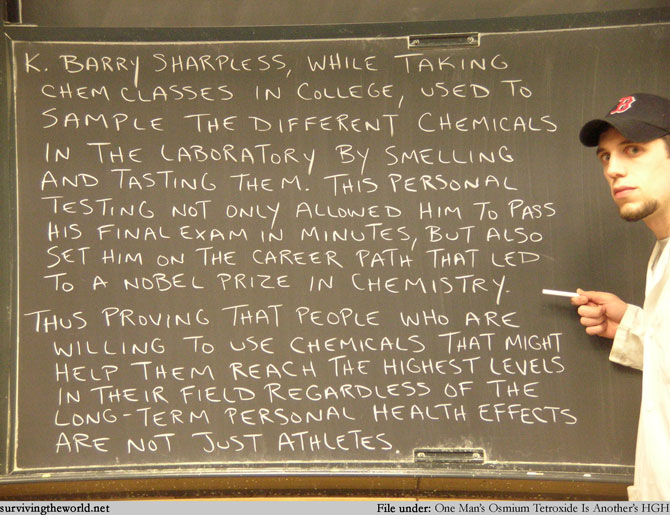 K. BARRY SHARPLESS, WHILE TAKING
CHEM CLASSES IN COLLEGE, USED TO
SAMPLE THE DIFFERENT CHEMICALS
IN THE LABORATORY BY SMELLING
AND TASTING THEM. THIS PERSONAL
TESTING NOT ONLY ALLOWED HIM TO PASS
HIS FINAL EXAM IN MINUTES, BUT ALSO
SET HIM ON THE CAREER PATH THAT LED
TO A NOBEL PRIZE IN CHEMISTRY.
THUS PROVING THAT PEOPLE WHO ARE
WILLING TO USE CHEMICALS THAT MIGHT
HELP THEM REACH THE HIGHEST LEVELS
IN THEIR FIELD REGARDLESS OF THE
LONG-TERM PERSONAL HEALTH EFFECTS
ARE NOT JUST ATHLETES.
B
survivingtheworld.net
File under: One Man's Osmium Tetroxide Is Another's HGH